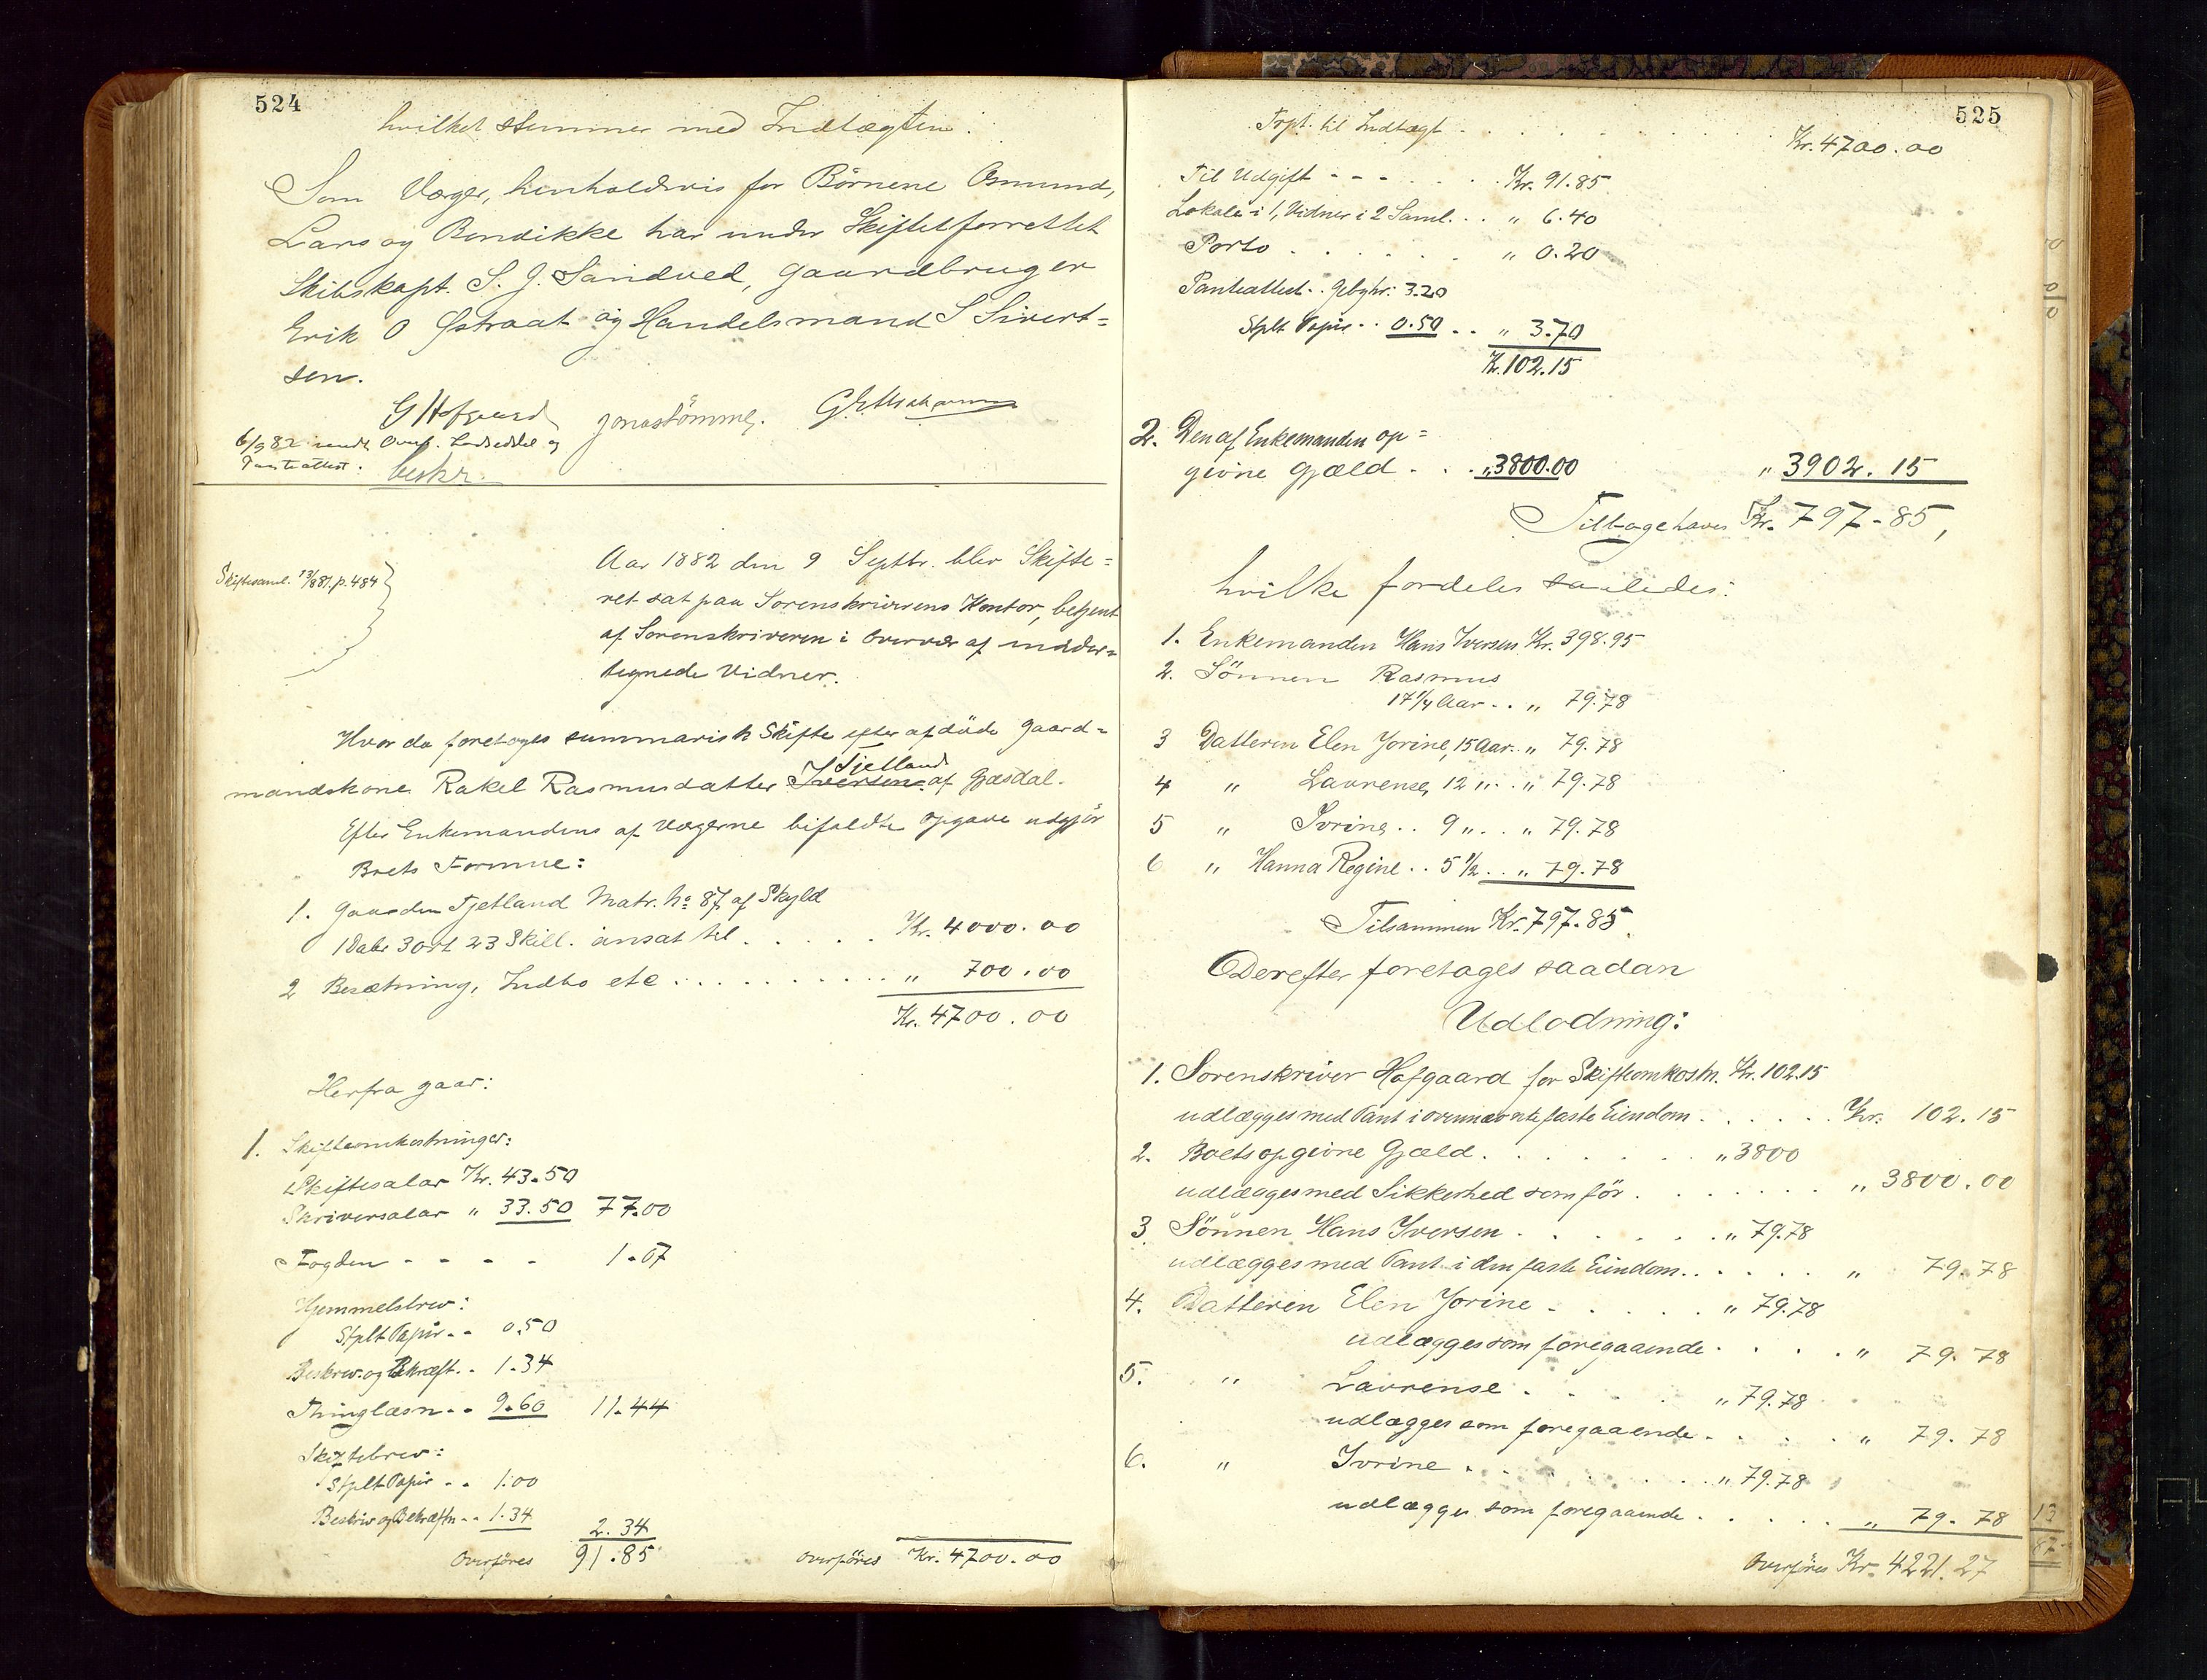 524
hvilket stemmer med Indtægten.
Som Værger, henholdsvis for Börnene Osmund,
Lars og Bendikke har under Skiftet forrettet
Skibskapt. S. J. Sandved, Gaardbruger
Erik O Østraat og Handelsmand S Sivert=
sen.
G Hofgaard
6/9 82 sendt Lodseddel og
Panteattest. beskr.
Skiftesaml. 13/8 81, p. 484
Aar 1882 den 9 Septbr. blev Skifte=
ret sat paa Sorenskriverens Kontor, betjent
af Sorenskriveren i Overvær af under=
tegnede Vidner.
Hvor da foretoges summarisk Skifte efter afdöde Gaard=
mandskone Rakel Rasmusdatter Iversen Tjetland af Gjæsdal.
Efter Enkemandens af Værgerne bifaldte Opgave udgjör
Boets Formue:
1. Gaarden Tjetland Matr. No 87 af Skyld
1 Daler 3 ort 23 Skill. ansat til . . . . . Kr. 4000.00
2 Besætning, Indbo etc . . . . . . . . . . „ 700.00
Kr. 4700.00
Herfra gaar:
1. Skifteomkostninger:
Skiftesalar Kr. 43.50
Skriversalar „ 33.50 77.00
Fogden - - - - 1.07
Hjemmelsbrev:
Stplt Papir . . 0.50
Beskriv. og Bekræft. . 1.34
Thinglæsn . . 9.60 11.44
Skiftebrev:
Stplt Papir . . 1.00
Beskriv og Bekræftn . . 1.34
2.34
Overföres 91.85 Overföres Kr. 4700.00
525
Trpt. til Indtægt . . . . . . Kr. 4700.00
Til Udgift - - - . . . Kr. 91.85
Lokale i 1, Vidner i 2 Saml. . . „ 6.40
Porto . . . . . . „ 0.20
Panteattest . . Gebyhr: 3.20
Stplt Papir . . 0.50 . . „ 3.70
Kr. 102.15
2. Den af Enkemanden op=
givne Gjæld . . . „ 3800.00 „ 3902.15
Tilbagehaves Kr. 797-85,
hvilke fordeles saaledes:
1. Enkemanden Hans Iversen Kr. 398.95
2. Sönnen Rasmus
17 1/4 Aar . . „ 79.78
3 Datteren Elen Jorine, 15 Aar . . „ 79.78
4 „ Laurense, 12 „ . . „ 79.78
5 „ Ivrine . . 9 „ . . „ 79.78
6 „ Hanna Regine . . 5 1/2 . . „ 79.78
Tilsammen Kr. 797.85.
Derefter foretages saadan
Udlodning:
1. Sorenskriver Hofgaard for Skifteomkostn. Kr. 102.15
udlægges med Pant i ovennævnte faste Eiendom . . . . . Kr. 102.15
2. Boets opgivne Gjæld . . . . . . „ 3800
udlægges med Sikkerhed som för . . . . . . „ 3800.00
3. Sönnen Hans Iversen . . . . . . „ 79.78
udlægges med Pant i den faste Eiendom . . . . . „ 79.78
4. Datteren Elen Jorine . . . . . „ 79.78
udlægges som foregaaende . . . . „ 79.78
5. „ Laurense . . . . „ 79.78
udlægges som foregaaende . . . . „ 79.78
6. „ Ivrine . . . . . . „ 79.78
udlægges som foregaaende . . . . . „ 79.78
Overföres Kr. 4221.27